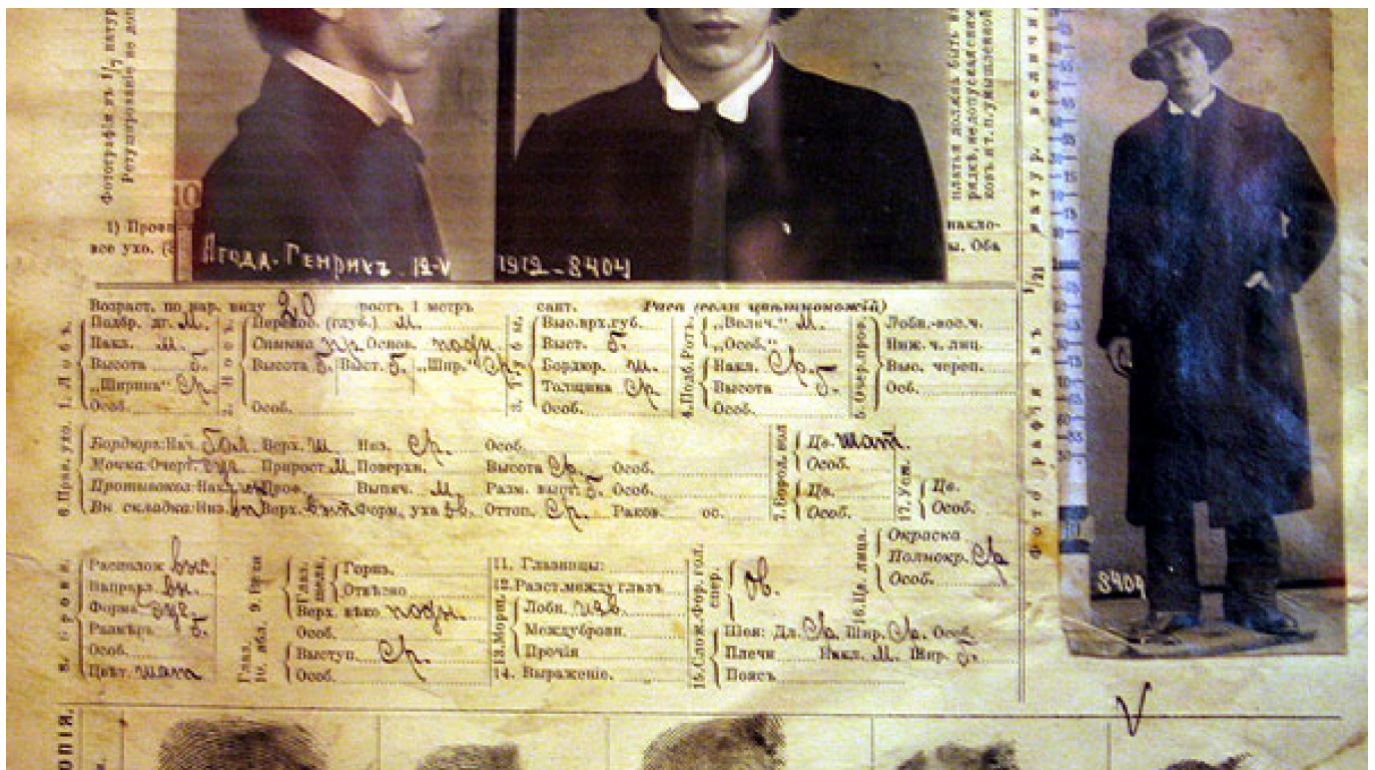 Фотографія въ 1/7 натур.
Ретушированіе не доп
платья должны быть
рядкѣ, не допуская
ковъ и т. п. умышленной
1) Пров
накло-
все ухо.
ы. Оба
ЯГОДА-ГЕНРИХЪ 12-V
1912-8404
10
Фотографія въ 1/21 натур. величин
8404
Возраст. по нар. виду 20 ростъ 1 метръ сант. Раса (если цвѣтнокожій)
1. Лобъ.
Подбр. дг. М.
Накл. М.
Высота б.
„Ширина“ Ср.
Особ.
2. Носъ.
Перенос. (глуб.) М.
Спинка Основ. подн.
Высота б. Выст. б. „Шир.“ Ср.
Особ.
3. Губы.
Выс. врх. губ.
Выст. б.
Бордюр. ш.
Толщина Ср.
Особ.
4. Подб. Ротъ.
„Велич.“ М.
„Особ.“
Накл. Ср.
Высота б.
Особ.
5. Очер. проф.
Лобн.-нос. ч.
Ниж. ч. лиц.
Выс. череп.
Особ.
6. Прав. ухо.
Бордюръ: Нач. бол. Верх. ш. Низ. Ср. Особ.
Мочка: Очерт. Прирост. М. Поверхн. Высота Ср. Особ.
Противокоз: Накл. Проф. Выпяч. М. Разм. выст. б. Особ.
Вн. складка: Низ. вп. Верх. Форм. уха Оттоп. Ср. Раков. ос.
7. Бород. вол
Цв. шат.
Особ.
Цв.
Особ.
17. Усы.
Цв.
Особ.
8. Брови.
Располож.
Направл. вн.
Форма дуг.
Размѣръ б.
Особ.
Цвѣт. шат
Глаз. щель.
Гориз.
Отвѣсно
Верх. вѣко подн.
Особ.
Глаз. 10. ябл.
Выступ. Ср.
Особ.
11. Глазницы:
12. Разст. между глазъ
13. Морщ.
Лобн. изв.
Междубровн.
Прочія
14. Выраженіе.
15. Слож. Фор. гол. спер.
ов.
Шея: Дл. Ср. Шир. Ср. Особ.
Плечи Накл. М. Шир.
Поясъ
16. Цв. лица.
Окраска
Полнокр. Ср
Особ.
V
ОПІЯ.